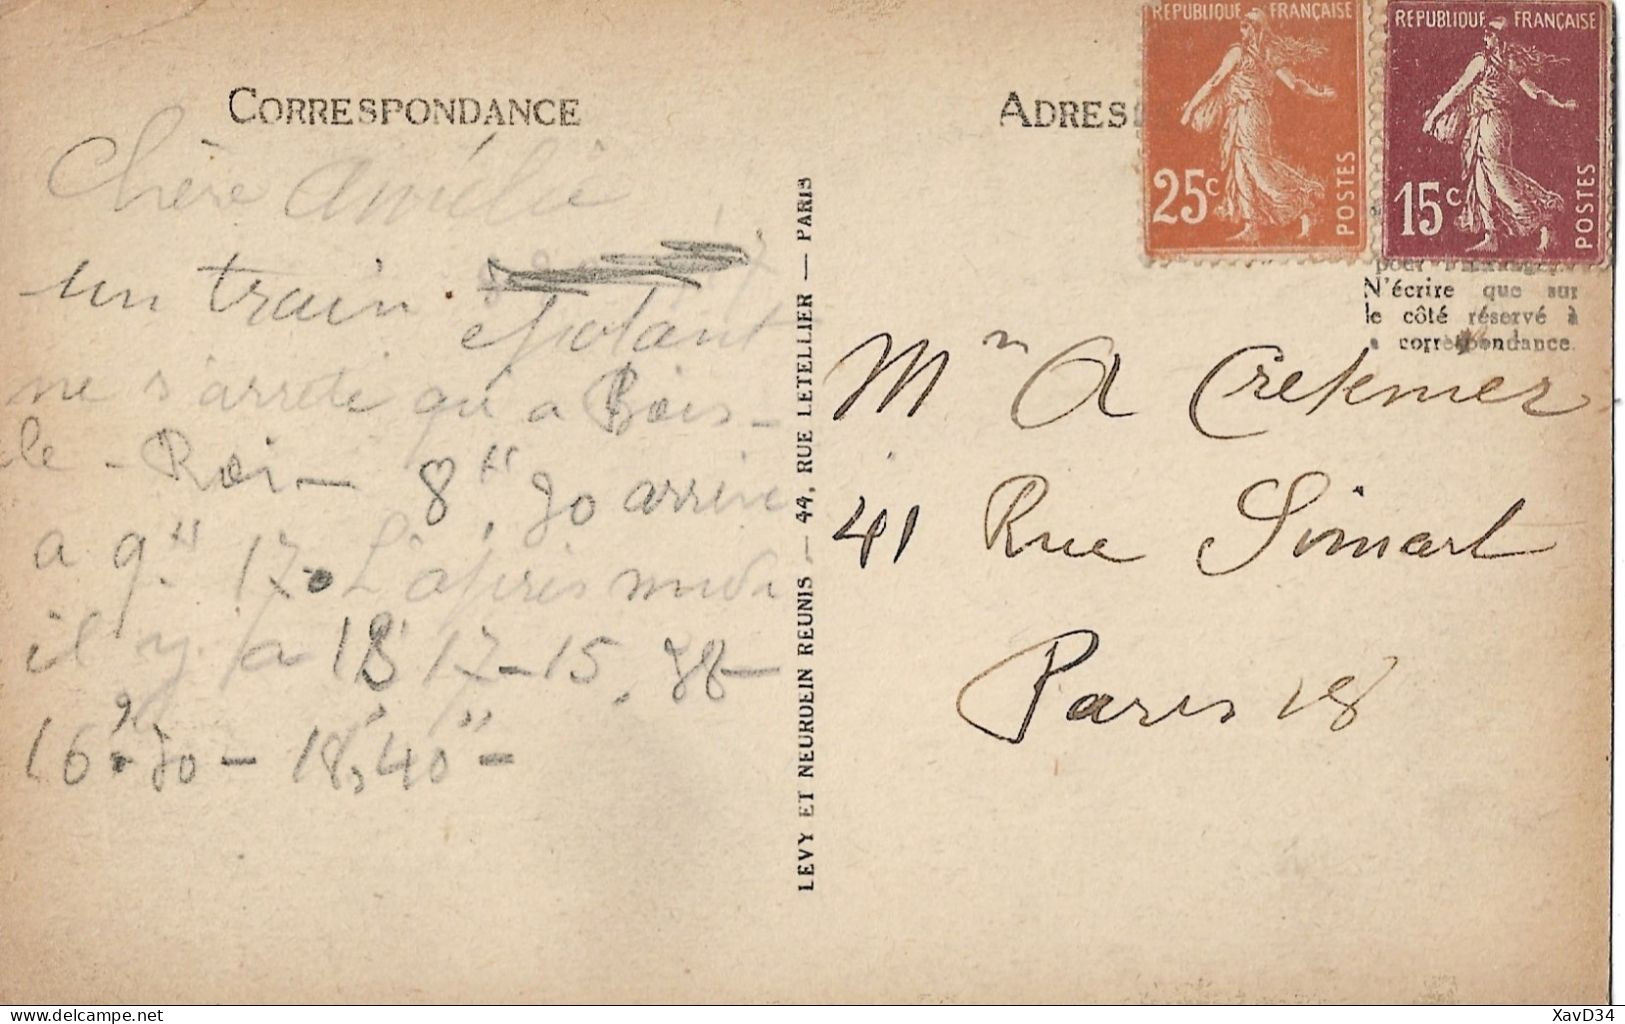 CORRESPONDANCE
Chère Amélie
un train
épatant
ne s'arrete qu'a Bois-
le-Roi- 8H,30 arrive
a 9.H 17. L'après midi
il y a 13 17-15.38-
16.30 - 18,40 -
LEVY ET NEURDEIN REUNIS — 44, RUE LETELLIER — PARIS
ADRES
REPUBLIQUE FRANÇAISE
25c
POSTES
REPUBLIQUE FRANÇAISE
15c
POSTES
N'écrire que sur
le côté réservé à
correspondance.
Mn A Crekmer
41 Rue Simart
Paris 18
delcampe.net
XavD34